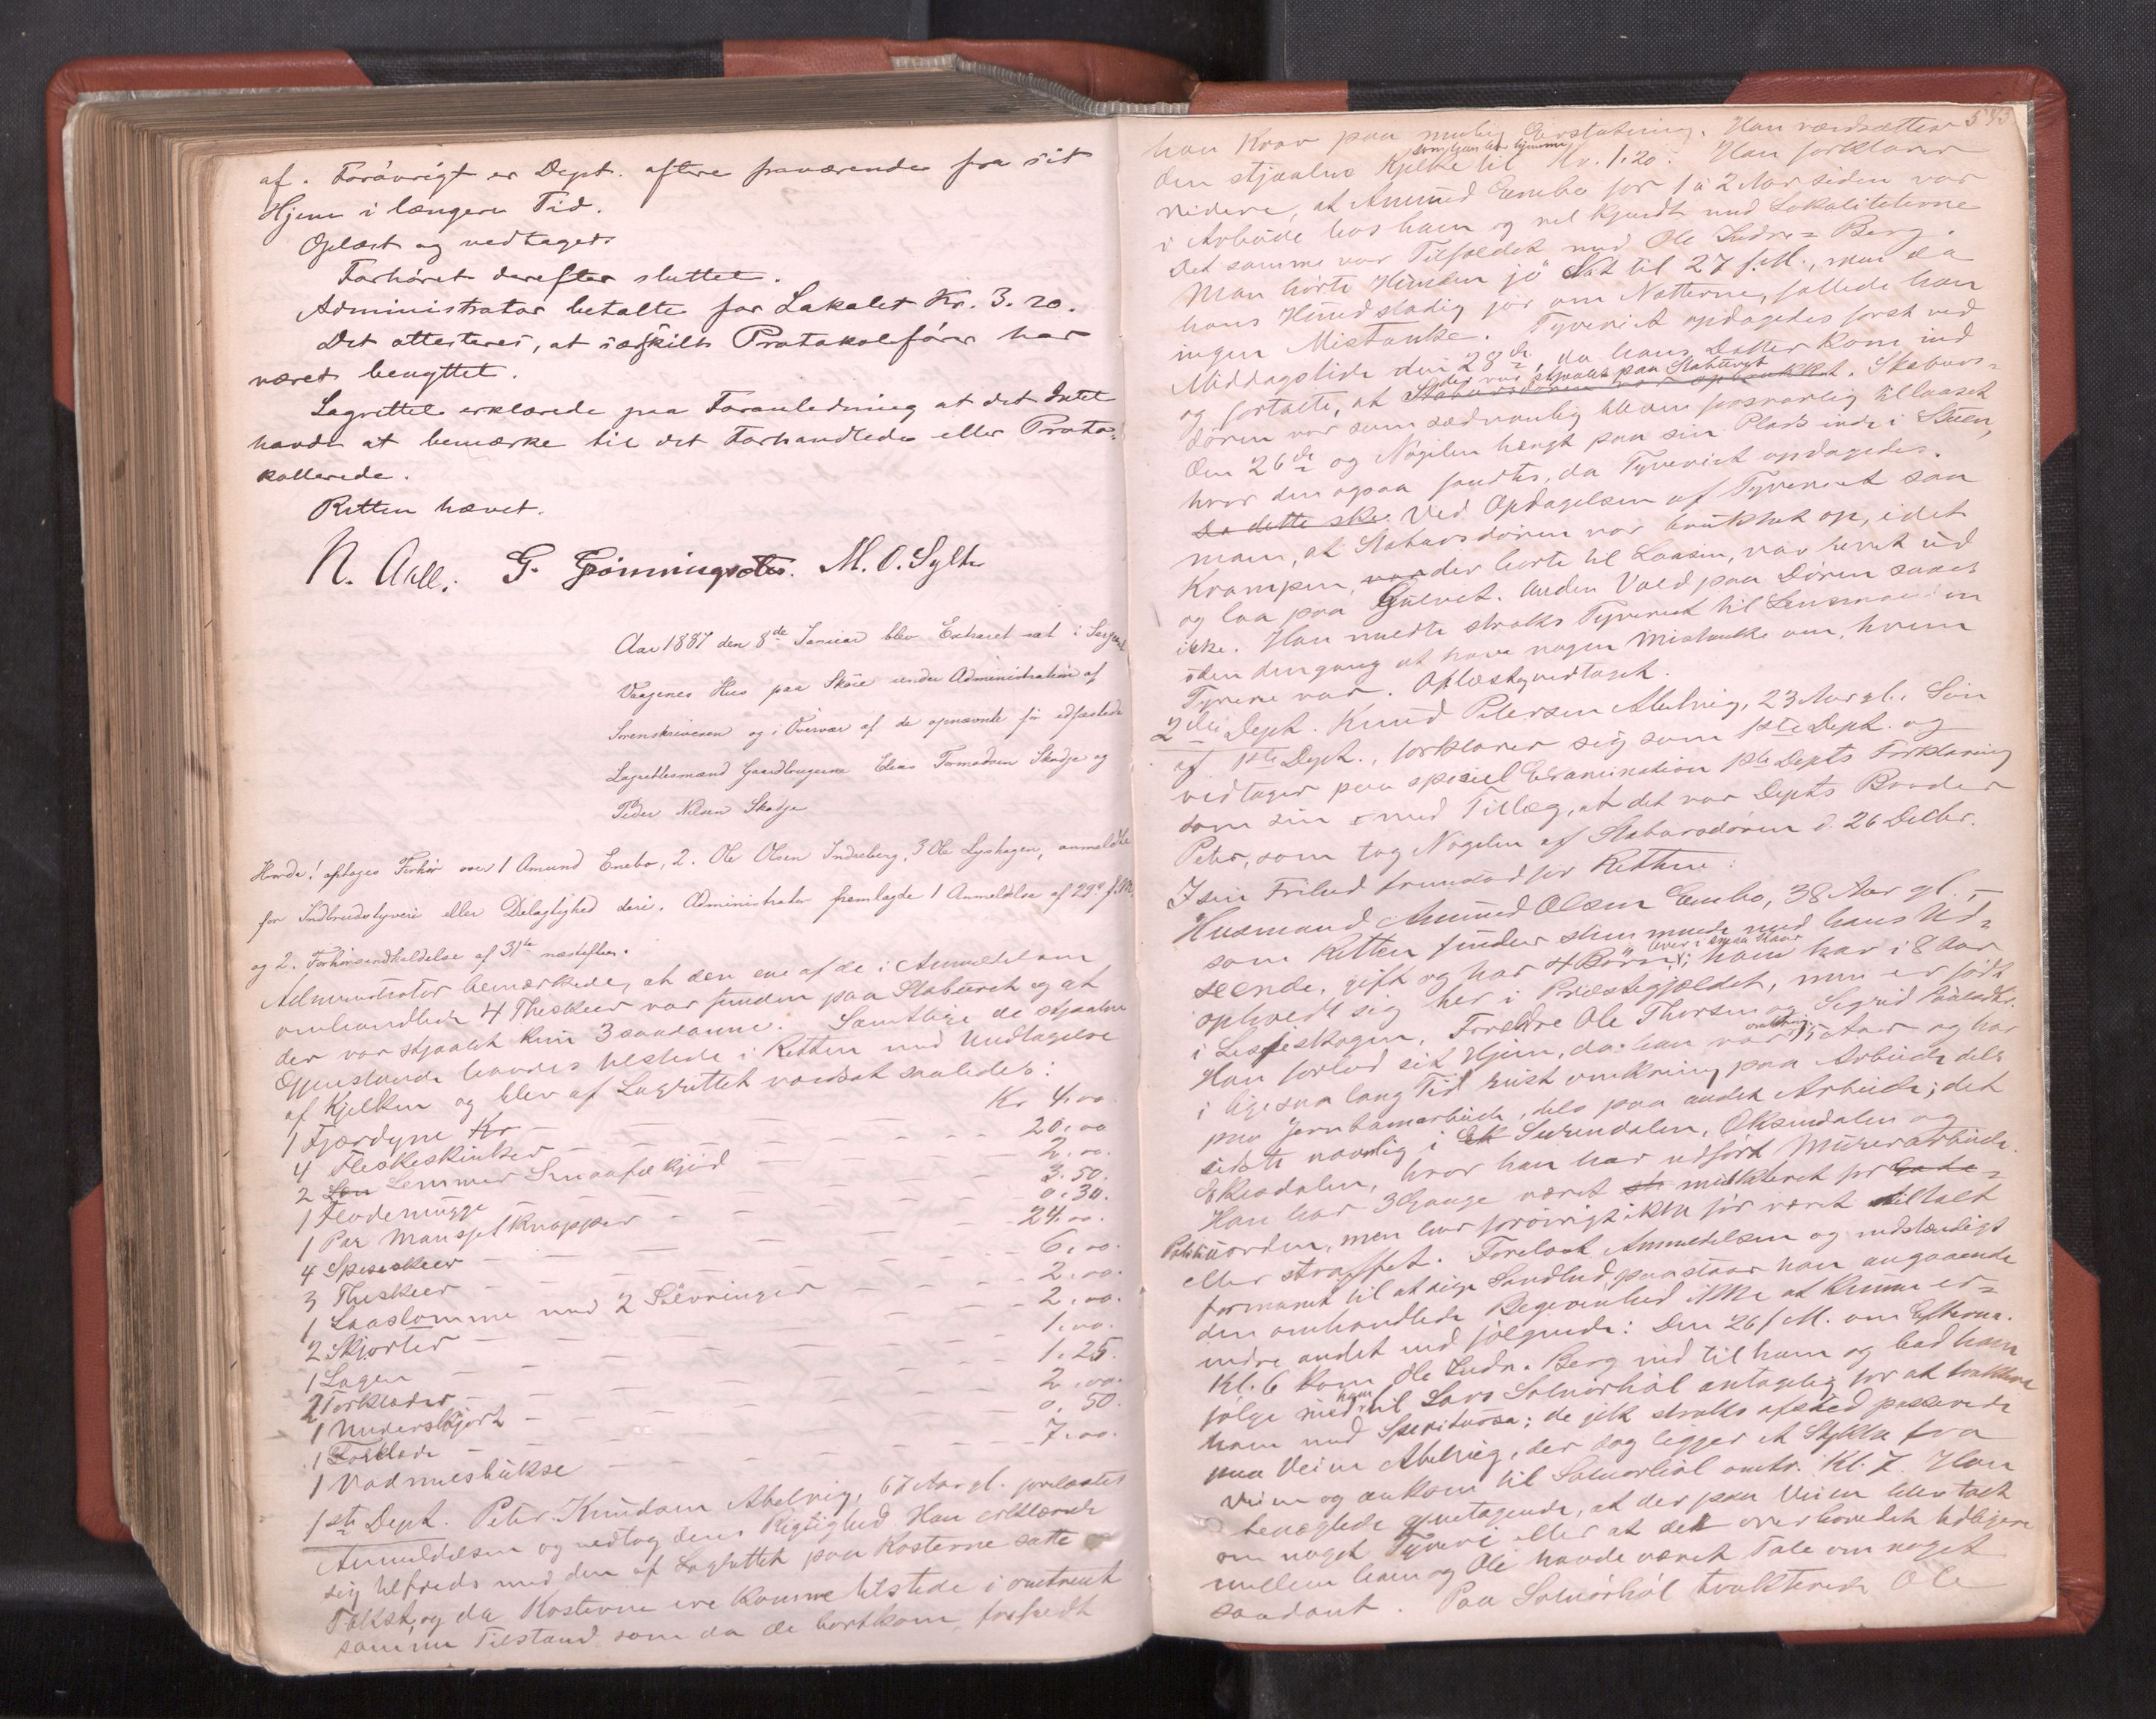 af. Forøvrigt er Dept. oftere fraværende fra sit
Hjem i længere Tid.
Oplæst og vedtaget.
Forhøret derefter sluttet.
Administrator betalte for Lokalet Kr. 3.20.
Det attesteres, at særskilt Protokolfører har
været benyttet.
Lagrettet erklærede paa Foranledning at det Intet
havde at bemærke til det Forhandlede eller Proto-
kollerede.
Retten hævet.
N. Aall. G. Grønningsæter. M. O. Sylte
Aar 1887 den 8de Januar blev Extraret sat i
Vaagenes Hus paa Skøie under Administration af
Sorenskriveren og i Overvær af de opnævnte før edfæstede
Lagrettesmænd Gaardbrugerne Elias Tormodsen Skodje og
Peder Nilsen Skodje
Hvorda! optages Forhør over 1 Amund Enebo, 2. Ole Olsen Indreberg, 3 Ole Lyshagen, anmeldte
for Indbrudstyveri eller Delagtighed deri. Administrator fremlagde 1 Anmeldelse af 29de f.M.
og 2. Forhørsindkaldelse af 31te næstefter.
Administrator bemærkede, at den ene af de i Anmeldelsen
omhandlede 4 Theskeer var funden paa Staburet og at
der var stjaalet kun 3 saadanne. Samtlige de stjaalne
Gjenstande havdes tilstede i Retten med Undtagelse
af Kjelken og blev af Lagrettet værdsat saaledes:
1 Fjærdyne Kr — Kr 4.00.
4 Fleskeskinker — 20.00
2 Lem Lemmer Smaafækjød — 2.00.
1 Flødemugge — 3.50.
1 Par Mansjetknapper — 0.30.
4 Spiseskeer — 24.00.
3 Theskeer — 6.00.
1 Laaslomme med 2 Sølvringer — 2.00.
2 Skjorter — 2.00.
1 Lagen — 1.00.
2 Tørklæder — 1.25.
1 Underskjørt — 2.00.
1 Forklæde — 0.50.
1 Vadmelsbukse — 7.00.
1ste Dept. Peter Knudsen Abelvig, 67 Aar gl. forelæstes
Anmeldelsen og vedtog dens Rigtighed. Han erklærede
sig tilfreds med den af Lagrettet paa Kosterne satte
Takst, og da Kosterne ere komne tilstede i omtrent
samme Tilstand som da de bortkom, frafaldt
593
han Krav paa mulig Erstatning. Han værdsætter
som han har hjemme
den stjaalne Kjelke til Kr. 1.20. Han forklarer
videre, at Amund Enebo for 1 à 2 Aar siden var
i Arbeide hos ham og vel kjendt med Lokaliteterne
Det samme var Tilfældet med Ole Indre-Berg.
Man hørte Hunden gjø Nat til 27 f.M., men da
hans Hund stadig gjør om Natterne, fattede han
ingen Mistanke. Tyveriet opdagedes først ved
Middagstide den 28de, da hans Datter kom ind
der var stjaalet paa Staburet
og fortalte, at Stabursdøren var opbrukket. Staburs-
døren var som sædvanlig bleven forsvarlig tillaaset
den 26de og Nøgelen hængt paa sin Plads inde i Stuen,
hvor den ogsaa fandtes, da Tyveriet opdagedes.
Da dette ske Ved Opdagelsen af Tyveriet saa
man, at Stabursdøren var brukket op, idet
Krampen, var der hørte til Laasen, var revet ud
og laa paa Gulvet. Anden Vold paa Døren saaes
ikke. Han meldte straks Tyveriet til Lensmanden
uden dengang at have nogen Mistanke om, hvem
Tyvene var. Oplæst og vedtaget.
2den Dept. Knud Petersen Abelvig, 23 Aar gl. Søn
af 1ste Dept., forklarer sig som 1ste Dept. og
vedtager paa speciel Examination 1ste Depts Forklaring
som sin med Tillæg, at det var Depts Broder
Peter, som tog Nøgelen af Stabursdøren d. 26 Decbr.
I sin Frihed fremstod for Retten:
Husmand Amund Olsen Enebo, 38 Aar gl.,
som Retten finder stemmende med hans Ud-
lever i smaa Kaar
seende, gift og har 4 Børn; han har i 8 Aar
opholdt sig her i Præstegjældet, men er født
i Lesjeskogen, Forældre Ole Thorsen og Sigrid
Han forlod sit Hjem, da han var 15 Aar og har
i ligesaa lang Tid reist omkring paa Arbeide dels
paa Jernbanearbeide, dels paa andet Arbeide; det
sidste navnlig i Ek Surendalen, Øksendalen og
Ekesdalen, hvor han har udført Murerarbeide.
Han har 3 Gange været st mulkteret for Gade-
Politiuorden, men har forøvrigt ikke før været tiltalt
eller straffet. Forelæst Anmeldelsen og indstændigt
formanet til at sige Sandhed paastaar han angaaende
den omhandlede Begivenhed ikke at kunne er-
indre andet end følgende: Den 26 f.M. om Efterm.
Kl. 6 kom Ole Indr. Berg ind til ham og bad ham
følge med ham til Lars Solnørhøl antagelig for at traktere
ham med Spirituosa; de gik straks afsted passerede
paa Veien Abelvig, der dog ligger et Stykke fra
Veien og ankom til Solnørhøl omtr. Kl. 7. Han
benægtede gjentagende, at der paa Veien blev talt
om noget Tyveri eller at det overhovedet tidligere
mellem ham og Ole havde været Tale om noget
saadant. Paa Solnørhøl trakterede Ole